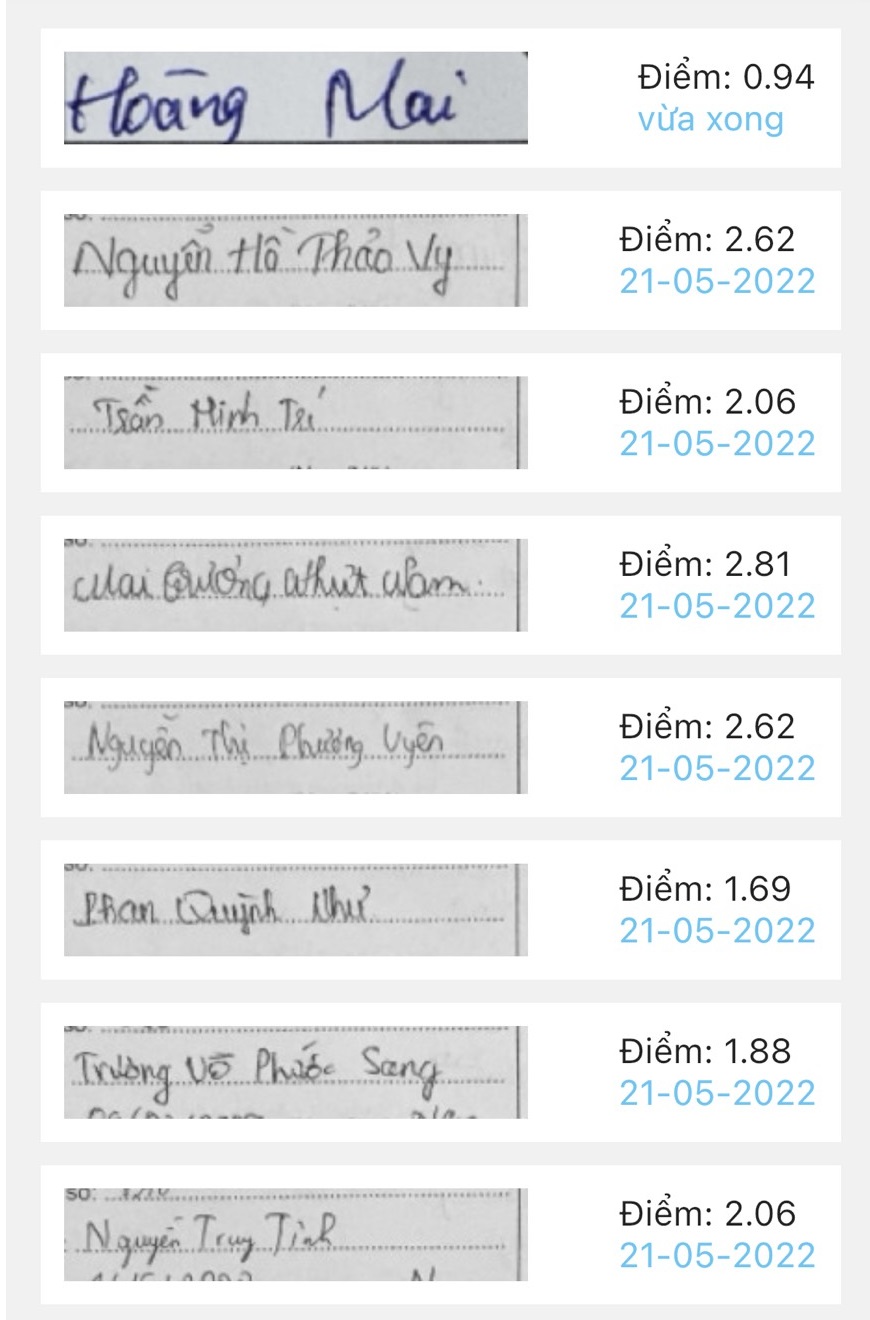 Hoāng Mai
Điểm: 0.94
vừa xong
Nguyển Hồ Thảo Vy
Điểm: 2.62
21-05-2022
Trần Minh Trí
Điểm: 2.06
21-05-2022
Mai Nhựt Nam
Điểm: 2.81
21-05-2022
Nguyễn Thị Phương Uyên
Điểm: 2.62
21-05-2022
Phan Quỳnh Như
Điểm: 1.69
21-05-2022
Trương Võ Phước Sang
Điểm: 1.88
21-05-2022
số:
Nguyễn Truy Tình
Điểm: 2.06
21-05-2022